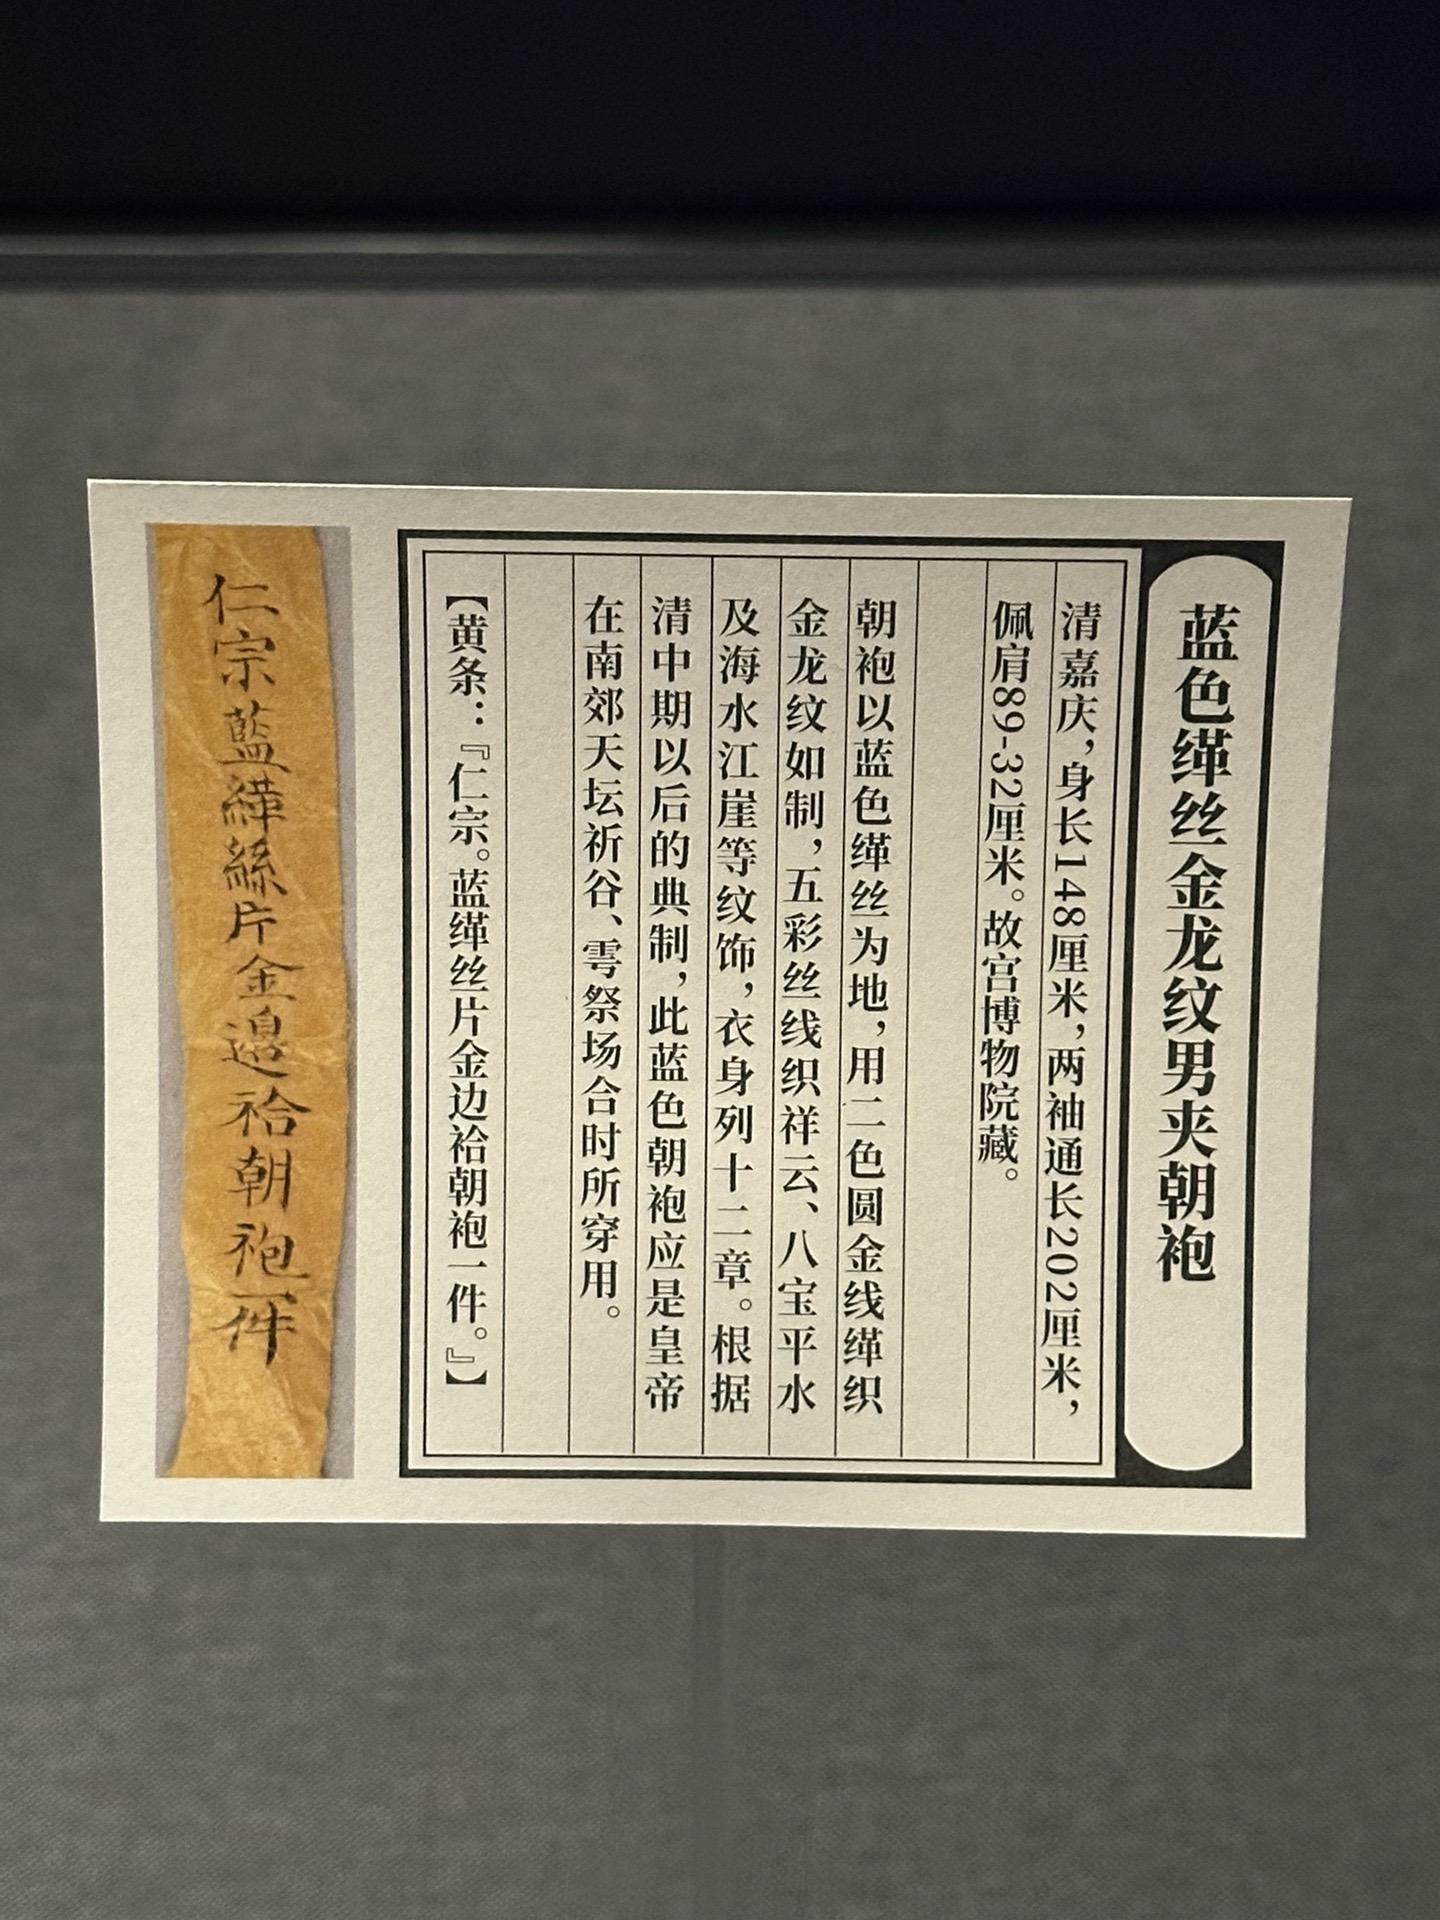 蓝色缂丝金龙纹男夹朝袍
清嘉庆，身长148厘米，两袖通长202厘米，
佩肩89-32厘米。故宫博物院藏。
朝袍以蓝色缂丝为地，用二色圆金线缂织
金龙纹如制，五彩丝线织祥云、八宝平水
及海水江崖等纹饰，衣身列十二章。根据
清中期以后的典制，此蓝色朝袍应是皇帝
在南郊天坛祈谷、雩祭场合时所穿用。
【黄条：『仁宗。蓝缂丝片金边袷朝袍一件。』】
仁宗藍緙絲片金邊袷朝袍一件